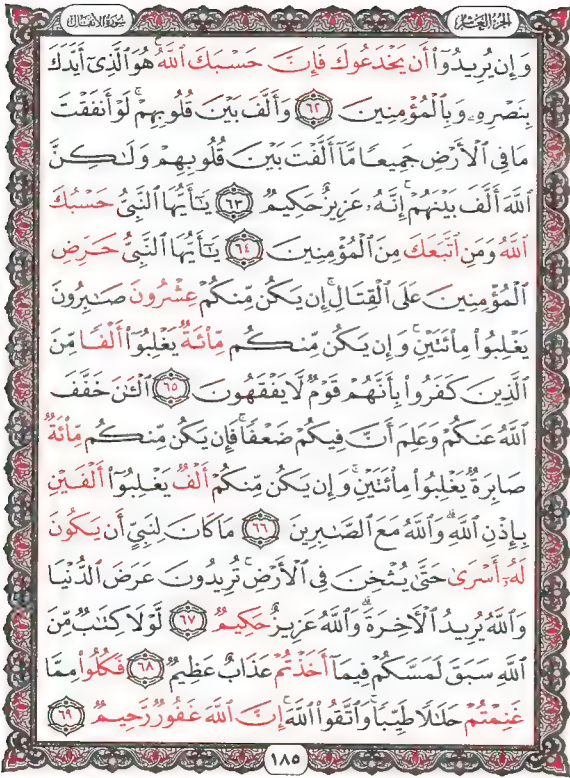 سورة الأنفال
الجزء العاشر
وَإِن يُرِيدُوٓا۟ أَن يَخْدَعُوكَ فَإِنَّ حَسْبَكَ ٱللَّهُ هُوَ ٱلَّذِىٓ أَيَّدَكَ
بِنَصْرِهِۦ وَبِٱلْمُؤْمِنِينَ ٦٢ وَأَلَّفَ بَيْنَ قُلُوبِهِمْ ۚ لَوْ أَنفَقْتَ
مَا فِى ٱلْأَرْضِ جَمِيعًا مَّآ أَلَّفْتَ بَيْنَ قُلُوبِهِمْ وَلَـٰكِنَّ
ٱللَّهَ أَلَّفَ بَيْنَهُمْ ۚ إِنَّهُۥ عَزِيزٌ حَكِيمٌ ٦٣ يَـٰٓأَيُّهَا ٱلنَّبِىُّ حَسْبُكَ
ٱللَّهُ وَمَنِ ٱتَّبَعَكَ مِنَ ٱلْمُؤْمِنِينَ ٦٤ يَـٰٓأَيُّهَا ٱلنَّبِىُّ حَرِّضِ
ٱلْمُؤْمِنِينَ عَلَى ٱلْقِتَالِ ۚ إِن يَكُن مِّنكُمْ عِشْرُونَ صَـٰبِرُونَ
يَغْلِبُوا۟ مِا۟ئَتَيْنِ ۚ وَإِن يَكُن مِّنكُم مِّا۟ئَةٌ يَغْلِبُوٓا۟ أَلْفًا مِّنَ
ٱلَّذِينَ كَفَرُوا۟ بِأَنَّهُمْ قَوْمٌ لَّا يَفْقَهُونَ ٦٥ ٱلْـَٔـٰنَ خَفَّفَ
ٱللَّهُ عَنكُمْ وَعَلِمَ أَنَّ فِيكُمْ ضَعْفًا ۚ فَإِن يَكُن مِّنكُم مِّا۟ئَةٌ
صَابِرَةٌ يَغْلِبُوا۟ مِا۟ئَتَيْنِ ۚ وَإِن يَكُن مِّنكُمْ أَلْفٌ يَغْلِبُوٓا۟ أَلْفَيْنِ
بِإِذْنِ ٱللَّهِ ۗ وَٱللَّهُ مَعَ ٱلصَّـٰبِرِينَ ٦٦ مَا كَانَ لِنَبِىٍّ أَن يَكُونَ
لَهُۥٓ أَسْرَىٰ حَتَّىٰ يُثْخِنَ فِى ٱلْأَرْضِ ۚ تُرِيدُونَ عَرَضَ ٱلدُّنْيَا
وَٱللَّهُ يُرِيدُ ٱلْـَٔاخِرَةَ ۗ وَٱللَّهُ عَزِيزٌ حَكِيمٌ ٦٧ لَّوْلَا كِتَـٰبٌ مِّنَ
ٱللَّهِ سَبَقَ لَمَسَّكُمْ فِيمَآ أَخَذْتُمْ عَذَابٌ عَظِيمٌ ٦٨ فَكُلُوا۟ مِمَّا
غَنِمْتُمْ حَلَـٰلًا طَيِّبًا ۚ وَٱتَّقُوا۟ ٱللَّهَ ۚ إِنَّ ٱللَّهَ غَفُورٌ رَّحِيمٌ ٦٩
١٨٥